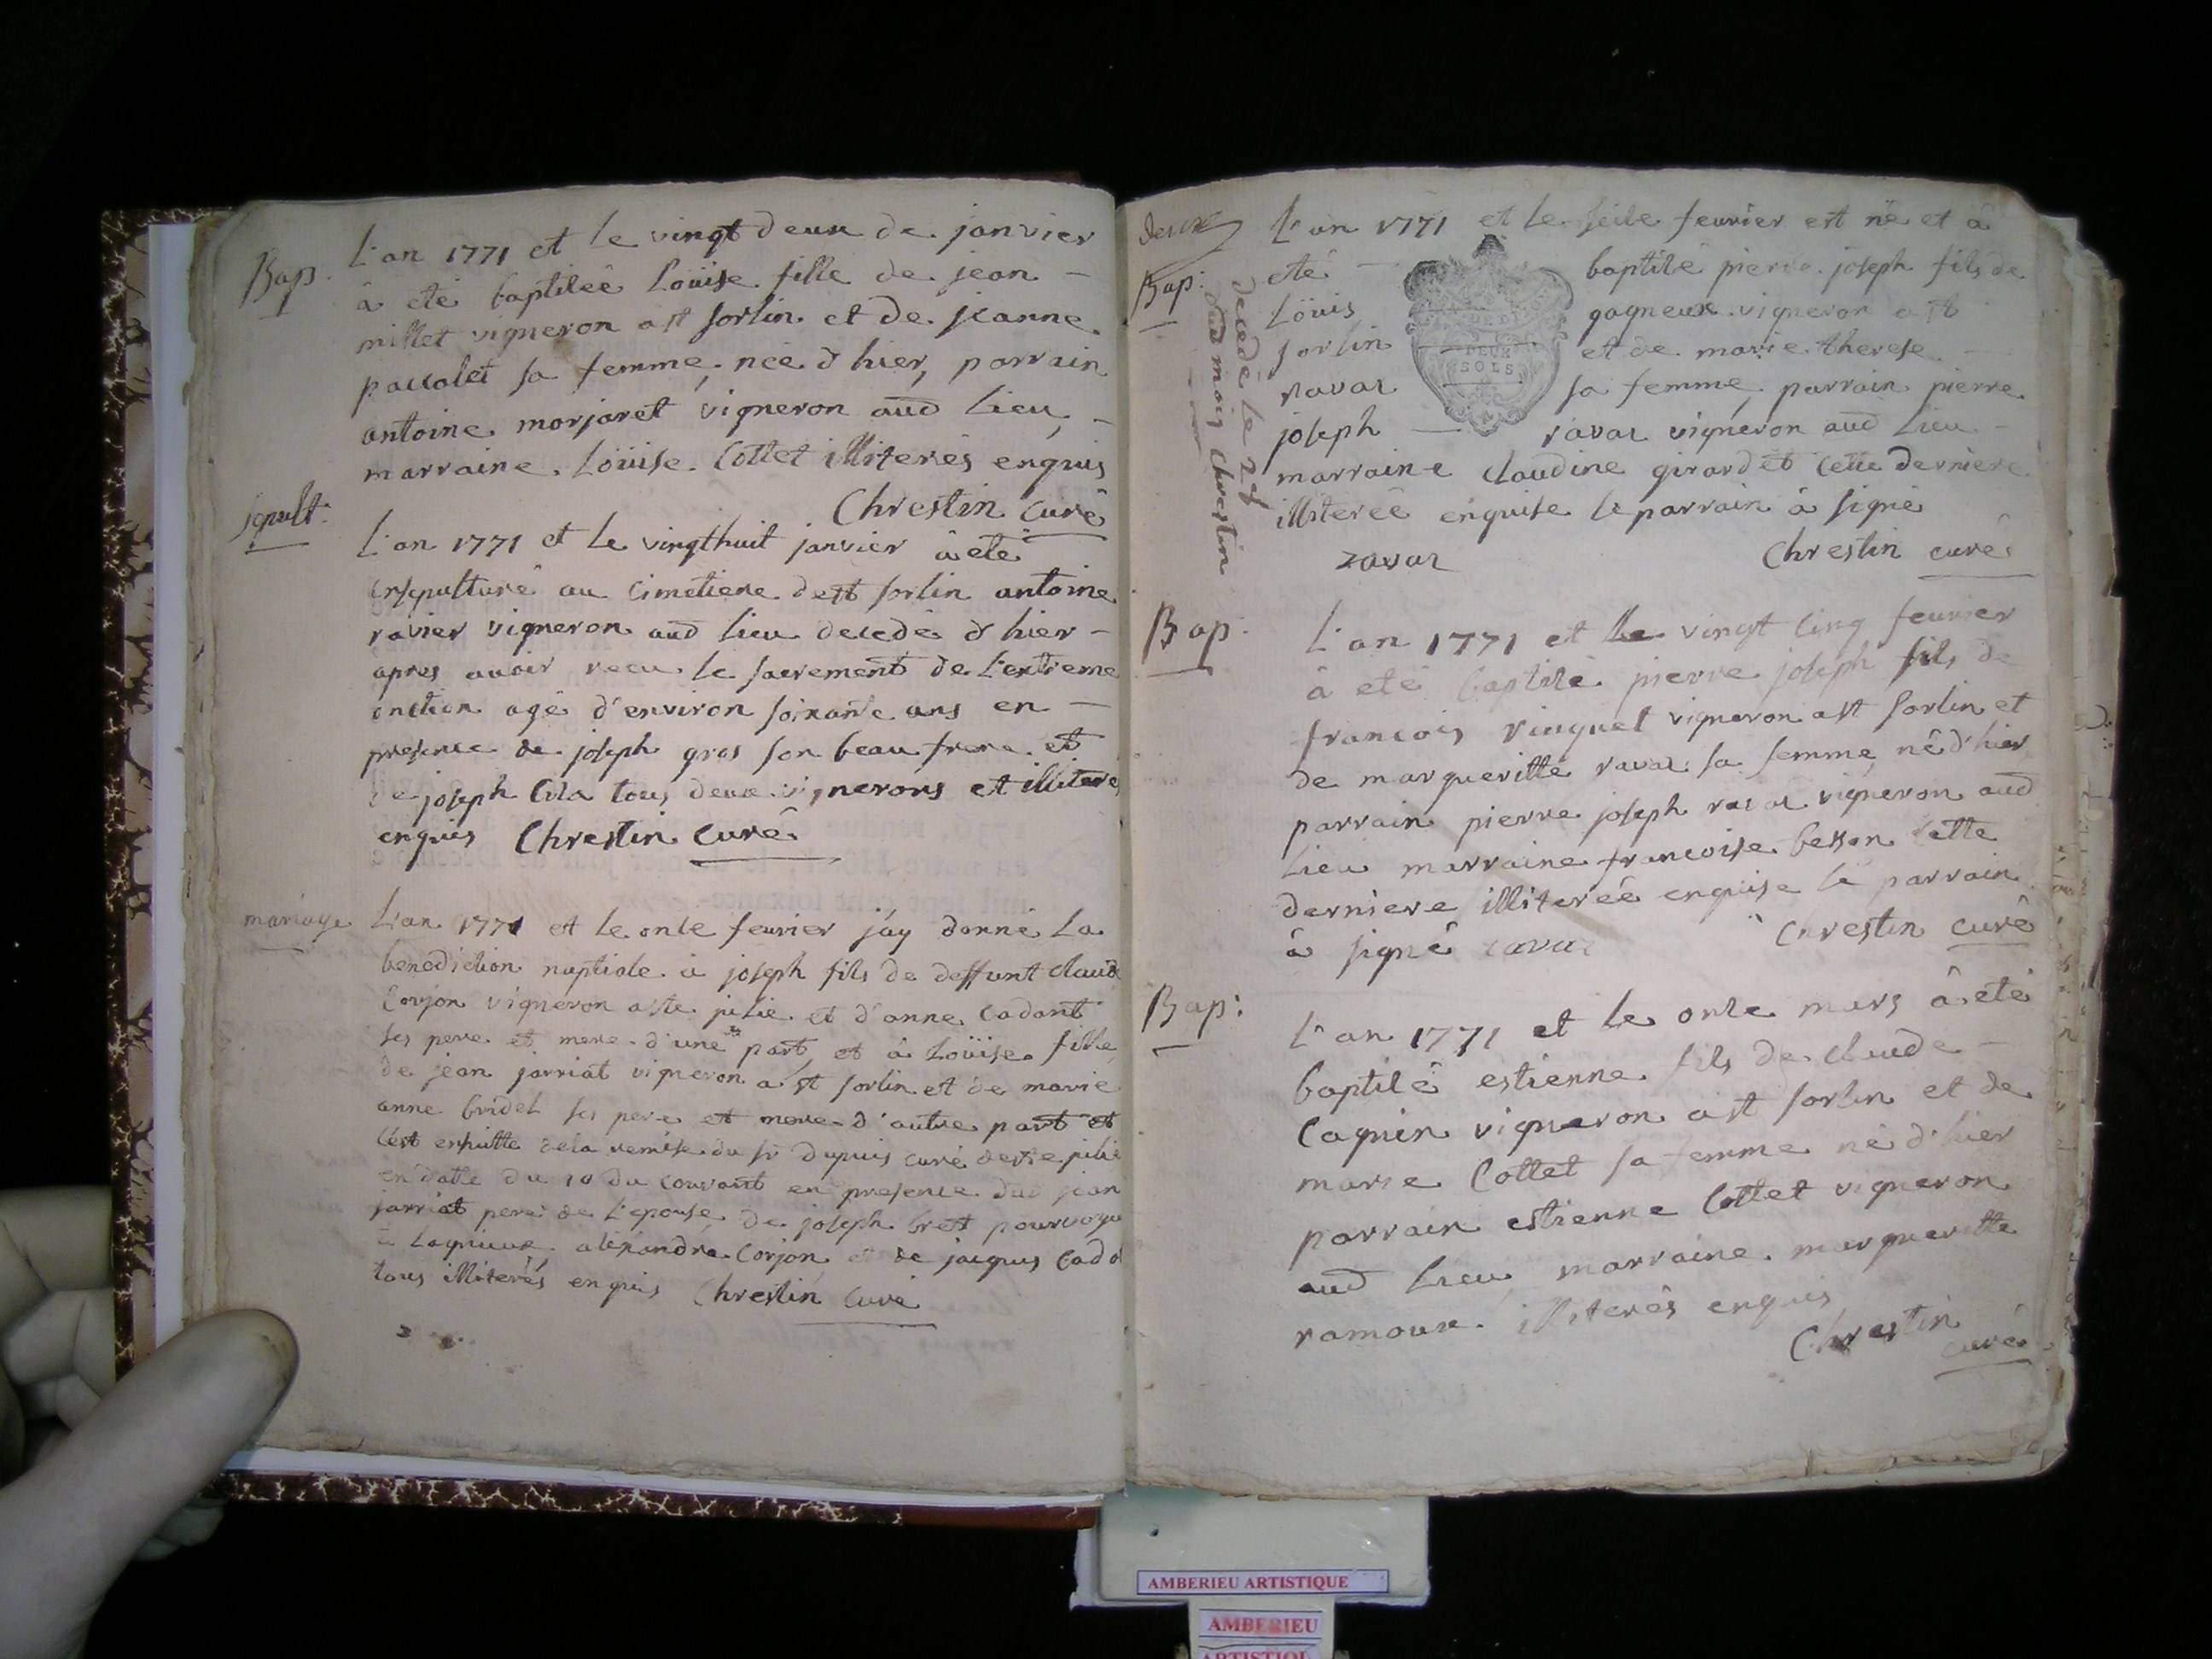 Bap. L'an 1771 et le vingt deux de janvier
â eté baptisëe Loüise fille de jean -
millet vigneron a st sorlin et de jeanne
paccalet sa femme, nëe d'hier, parrain
antoine morjaret vigneron aud lieu, -
marraine Loüise Cottet illiterés enquis
Chrestin curé
sepult: L'an 1771 et le vingthuit janvier â eté
ensepulturé au cimetiere de st sorlin antoine
ravier vigneron aud lieu decedé d'hier -
apres avoir recu le sacrement de l'extreme
onction agé d'environ soixante ans en -
presence de joseph gros son beau frere et
de joseph tous deux vignerons et illiteré
enquis Chrestin curé
mariage L'an 1771 et le onse feurier j'ay donné la
benediction nuptiale à joseph fils de deffunt claud
Corjon vigneron a ste julie et d'anne Cadant
ses pere et mere d'une part, et â Loüise fille
de jean jarriat vigneron a st sorlin et de marie
anne bridel ses pere et mere d'autre part et
c'est ensuitte de la remise du sr dupuis curé de ste julie
en datte du 10 du courant en presence dud jean
jarriat pere de l'epouse de joseph bret pourvoyeu
a lagnieux alexandre Corjon et de jacques Cada
tous illiterés enquis Chrestin curé
Bap: L'an 1771 et le seise feurier est né et â
eté - baptisé pierre joseph fils de
Löuis gagneux vigneron a st
sorlin et de marie therese -
ravar sa femme, parrain pierre
joseph - ravar vigneron aud lieu -
marraine claudine girardet cette derniere
illiterëe enquise le parrain â signé
ravar Chrestin curé
decedé le 24
dud mois Chrestin
Bap. L'an 1771 et le vingt cinq feurier
â eté baptisé pierre joseph fils de
francois vinquet vigneron a st sorlin et
de margueritte ravar sa femme, né d'hier,
parrain pierre joseph ravar vigneron aud
lieu marraine francoise besson cette
derniere illiterëe enquise le parrain
â signé ravar Chrestin curé
Bap: L'an 1771 et le onse mars â eté
baptisé estienne fils de claude -
Cagnin vigneron a st sorlin et de
marie Cottet sa femme né d'hier
parrain estienne Cottet vigneron
aud lieu, marraine margueritte
ramoux illiterés enquis
Chrestin
curé
DEUX
SOLS
AMBERIEU ARTISTIQUE
AMBERIEU
ARTISTIQUE